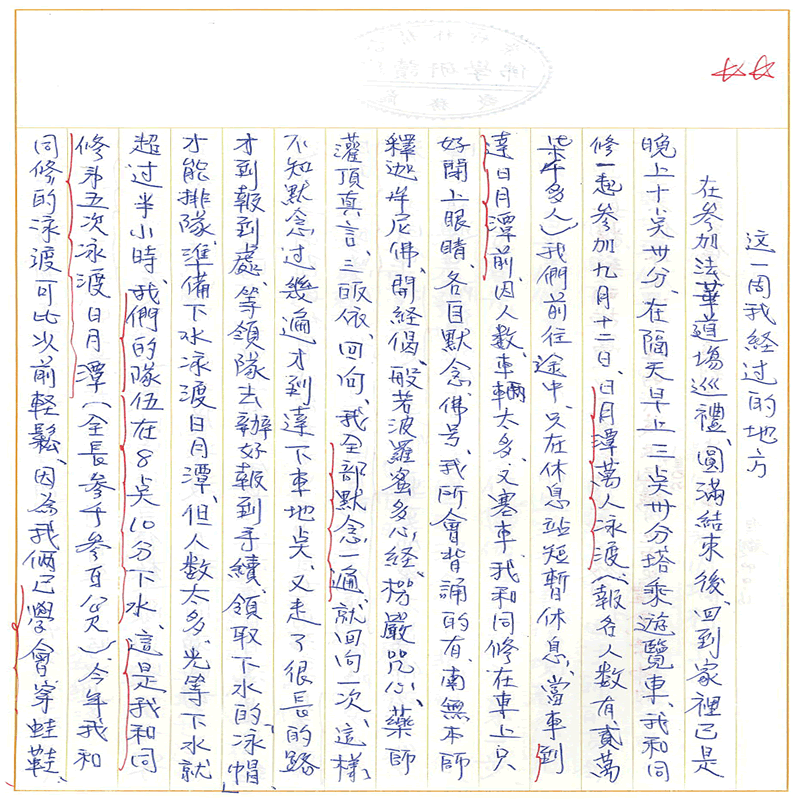 这一周我经过的地方
在參加法華道場巡禮、圓滿結束後、回到家裡已是
晚上十点卅分、在隔天早上三点卅分塔乘遊覽車、我和同
修一起參加九月十二日、日月潭萬人泳渡(報名人数有貳萬
柒千多人)我們前往途中、只在休息站短暫休息、當車到
達日月潭前、因人数、車輛太多、又塞車、我和同修在車上只
好閉上眼睛、各自默念佛号、我所會背誦的有、南無本師
釋迦牟尼佛、開経偈、般若波羅蜜多心経、楞嚴咒心、藥師
灌頂真言、三皈依、回向、我全部默念一遍、就回向一次、這樣、
不知默念过幾遍才到達下車地点、又走了很長的路
才到報到處、等領隊去辦好報到手續、領取下水的泳帽、
才能排隊、準備下水泳渡日月潭、但人数太多、光等下水就
超过半小時、我們的隊伍在8点10分下水、這是我和同
修第五次泳渡日月潭(全長參千參百公尺)今年我和
同修的泳渡可比以前輕鬆、因為我倆已學會穿蛙鞋、